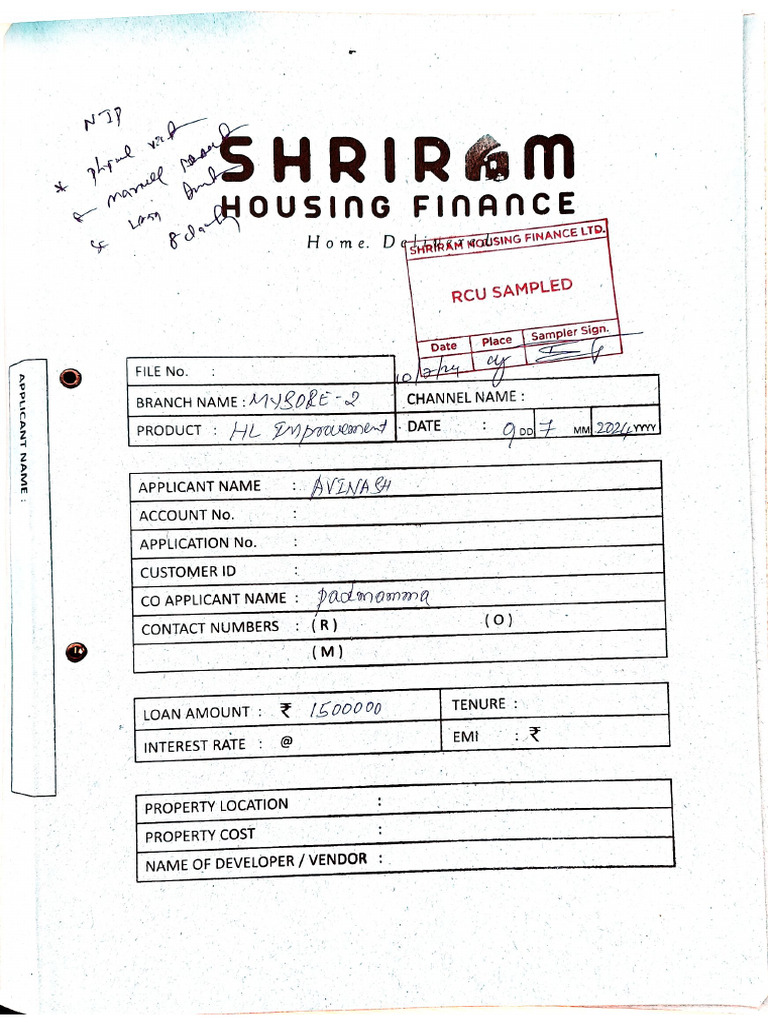 NIP
SHRIRAM
HOUSING FINANCE
Home. Delivered
SHRIRAM HOUSING FINANCE LTD.
RCU SAMPLED
Date Place Sampler Sign.
10/7/24
FILE No. :
BRANCH NAME : MYSORE-2
CHANNEL NAME :
PRODUCT : HL Improvement
DATE : 9 DD 7 MM 2024 YYYY
APPLICANT NAME :
APPLICANT NAME : AVINASH
ACCOUNT No. :
APPLICATION No. :
CUSTOMER ID :
CO APPLICANT NAME : padmamma
CONTACT NUMBERS : (R) (O)
(M)
LOAN AMOUNT : ₹ 1500000
TENURE :
INTEREST RATE : @
EMI : ₹
PROPERTY LOCATION :
PROPERTY COST :
NAME OF DEVELOPER / VENDOR :